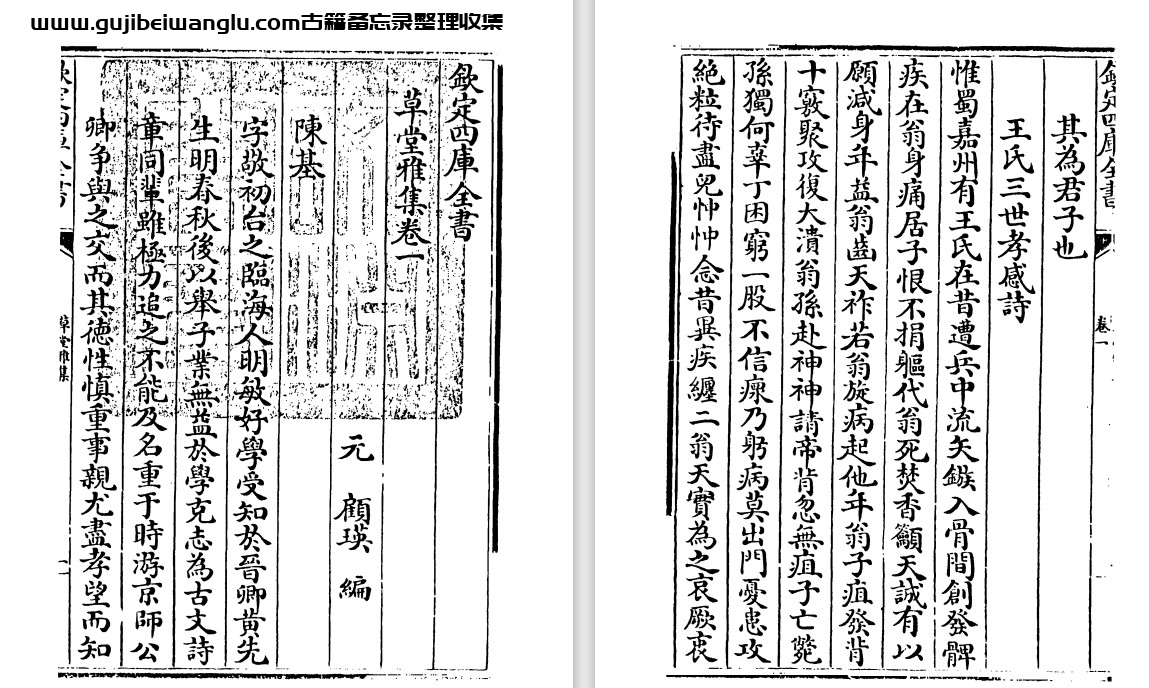 www.gujibeiwanglu.com古籍备忘录整理收集
欽定四庫全書
草堂雅集卷一
元 顧瑛 編
陳基
字敬初台之臨海人明敏好學受知於晉卿黄先
生明春秋後以舉子業無益於學克志為古文詩
章同輩雖極力追之不能及名重于時游京師公
卿争與之交而其徳性慎重事親尤盡孝望而知
欽定四庫全書
草堂雅集
一
欽定四庫全書
卷一
其為君子也
王氏三世孝感詩
惟蜀嘉州有王氏在昔遭兵中流矢鏃入骨間創發髀
疾在翁身痛居子恨不捐軀代翁死焚香籲天誠有以
願減身年益翁齒天祚若翁旋病起他年翁子疽發背
十竅聚攻復大潰翁孫赴神神請帝背忽無疽子亡斃
孫獨何辜丁困窮一股不信瘝乃躬病莫出門憂患攻
絶粒待盡兒忡忡念昔異疾纒二翁天實為之哀厥衷